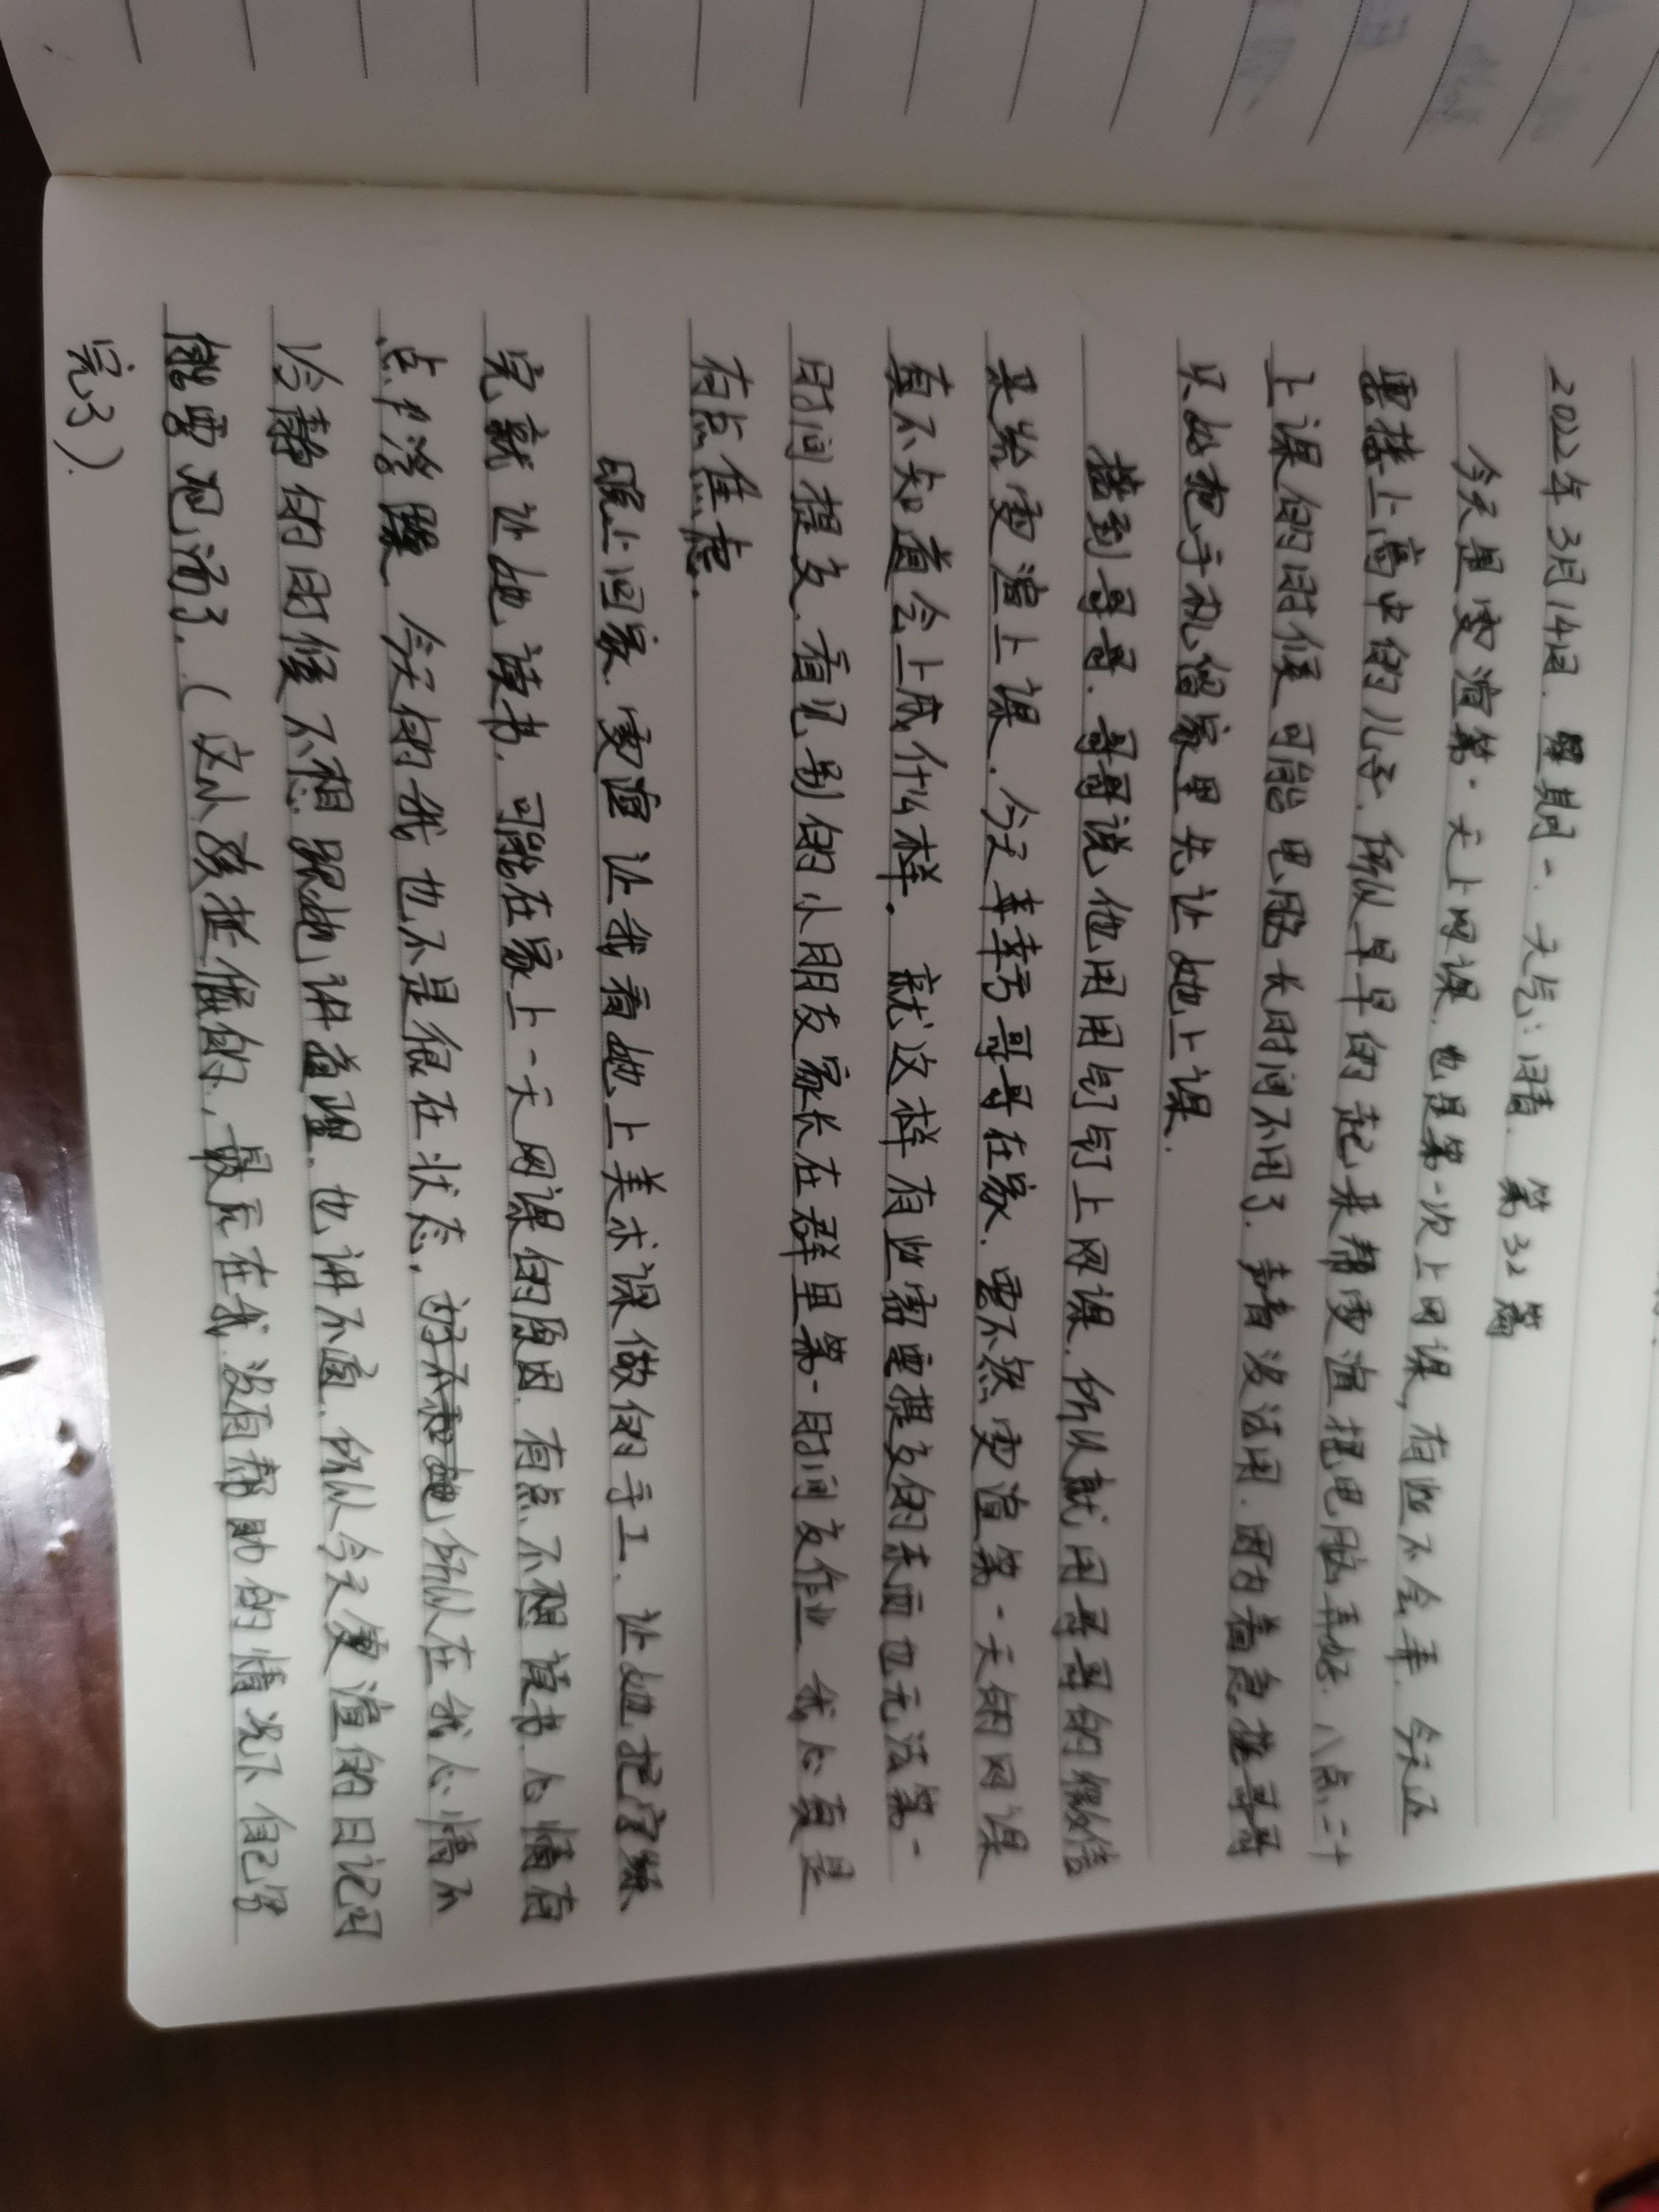 2022年3月14日. 星期一. 天气:晴. 第32篇
今天是雯渲第一天上网课. 也是第一次上网课, 有些不会弄. 今天还
要接上高中的儿子. 所以早早的起来帮雯渲把电脑弄好. 八点二十
上课的时候可能电脑长时间不用了. 声音没法用. 因为着急接哥哥
只好把手机留家里先让她上课.
接到哥哥. 哥哥说他用用钉钉上网课. 所以就用哥哥的微信
来给雯渲上课. 今天幸亏哥哥在家. 要不然雯渲第一天的网课
真不知道会上成什么样. 就这样有些需要提交的东西也无法第一
时间提交. 看见别的小朋友家长在群里第一时间交作业 我心真是
有点焦虑.
晚上回家. 雯渲让我看她上美术课做的手工. 让她把字练
完就让她读书. 可能在家上一天网课的原因. 有点不想读书心情有
点小浮躁. 今天的我也不是很在状态. 所以在我心情不
冷静的时候不想跟她讲道理. 也讲不通. 所以今天雯渲的日记可
能要泡汤了. (应从孩准备的, 最后在我没有帮助的情况下自己写
完了).